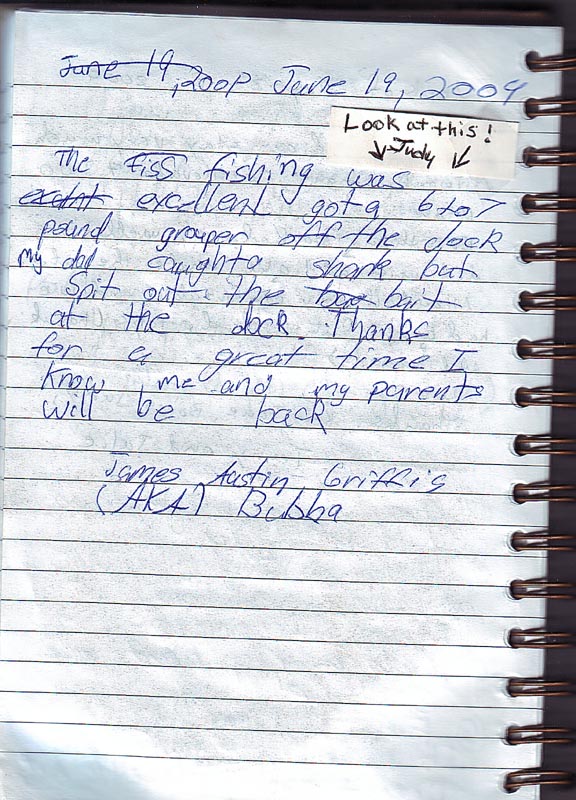 June 19, 2009 June 19, 2009
Look at this!
Judy
The fiss fishing was
excelnt excellent got a 6 to 7
pound grouper off the dock
my dad caught a shark but
Spit out the bag bait
at the dock. Thanks
for a great time I
Know me and my parents
will be back
James Austin Griffis
(AKA) Bubba